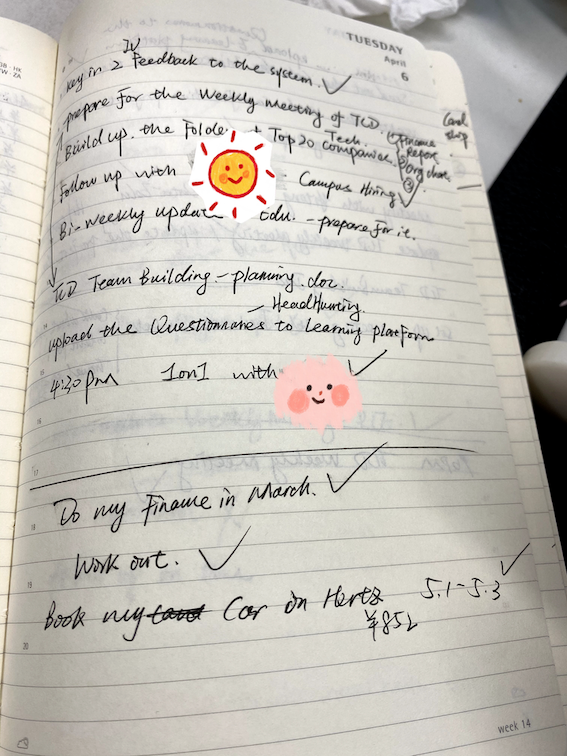 TUESDAY
April
6
IV
key in 2 Feedback to the system.
prepare for the Weekly Meeting of TCD
Build up the Folde + Top 20 companies. Tech.
① Finance
Report
② Org chart
③
Follow up with · Campus Hiring
Bi-weekly update Edu. - prepare for it.
TCD Team Building - planning. doc.
- HeadHunting.
upload the Questionnaires to Learning platform
4:30 pm 1 on 1 with
Do my Finance in March.
Work out.
Book my Car on Hertz 5.1-5.3
¥852
week 14